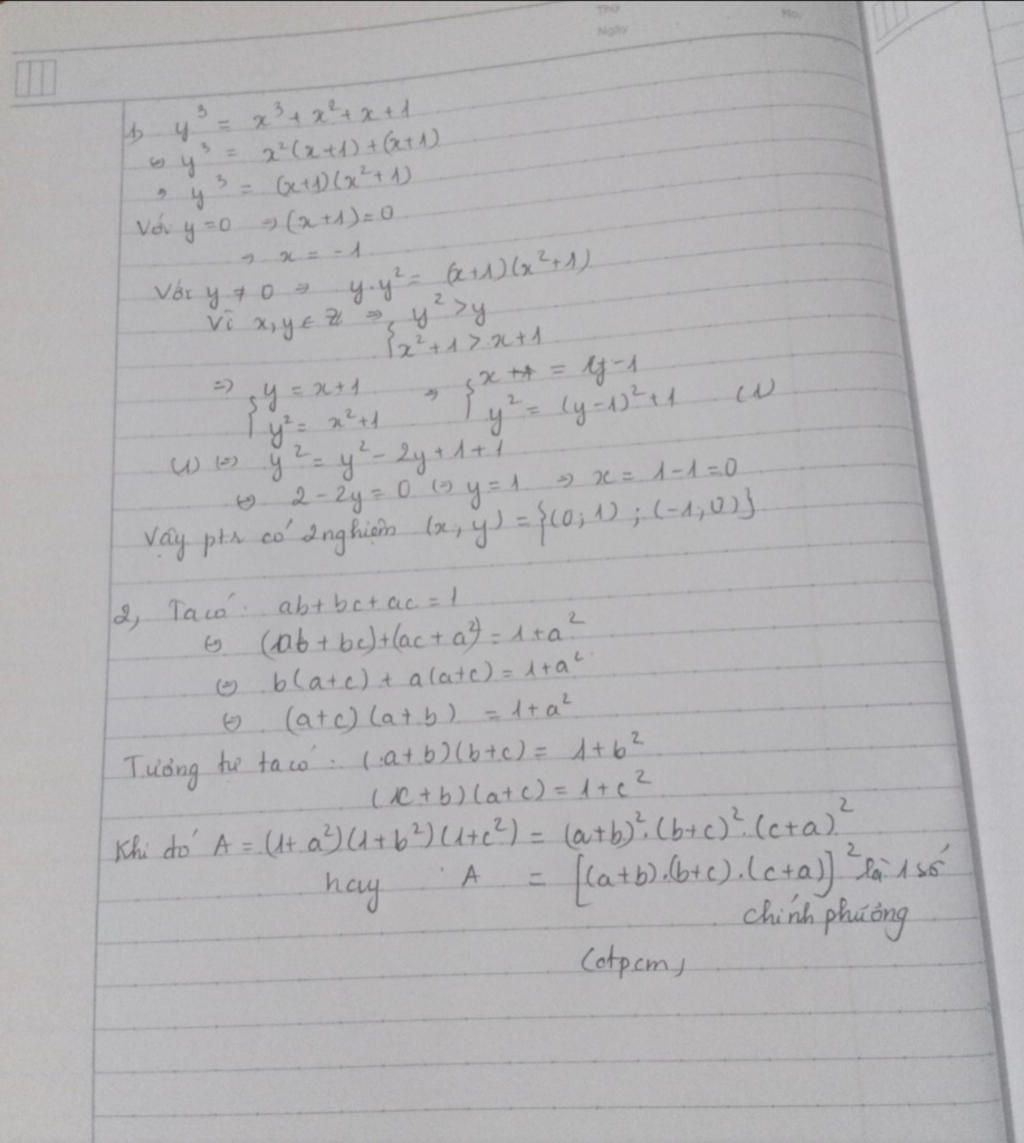 Thứ
Ngày
No.
1, y³ = x³ + x² + x + 1
⇔ y³ = x²(x+1) + (x+1)
⇒ y³ = (x+1)(x²+1)
Với y = 0 ⇒ (x+1) = 0
⇒ x = -1
Với y ≠ 0 ⇒ y.y² = (x+1)(x²+1)
Vì x, y ∈ Z ⇒ { y² > y
x²+1 > x+1
⇒ { y = x+1 ⇒ { x = y-1
y² = x²+1 y² = (y-1)²+1 (1)
(1) ⇔ y² = y² - 2y + 1 + 1
⇔ 2 - 2y = 0 ⇔ y = 1 ⇒ x = 1-1 = 0
Vậy ptr có 2 nghiệm (x, y) = {(0; 1) ; (-1, 0)}
2, Ta có: ab + bc + ac = 1
⇔ (ab + bc) + (ac + a²) = 1 + a²
⇔ b(a+c) + a(a+c) = 1 + a²
⇔ (a+c)(a+b) = 1 + a²
Tương tự ta có: (a+b)(b+c) = 1 + b²
(c+b)(a+c) = 1 + c²
Khi đó A = (1+a²)(1+b²)(1+c²) = (a+b)².(b+c)².(c+a)²
hay A = [(a+b).(b+c).(c+a)]² là 1 số
chính phương
(đpcm)